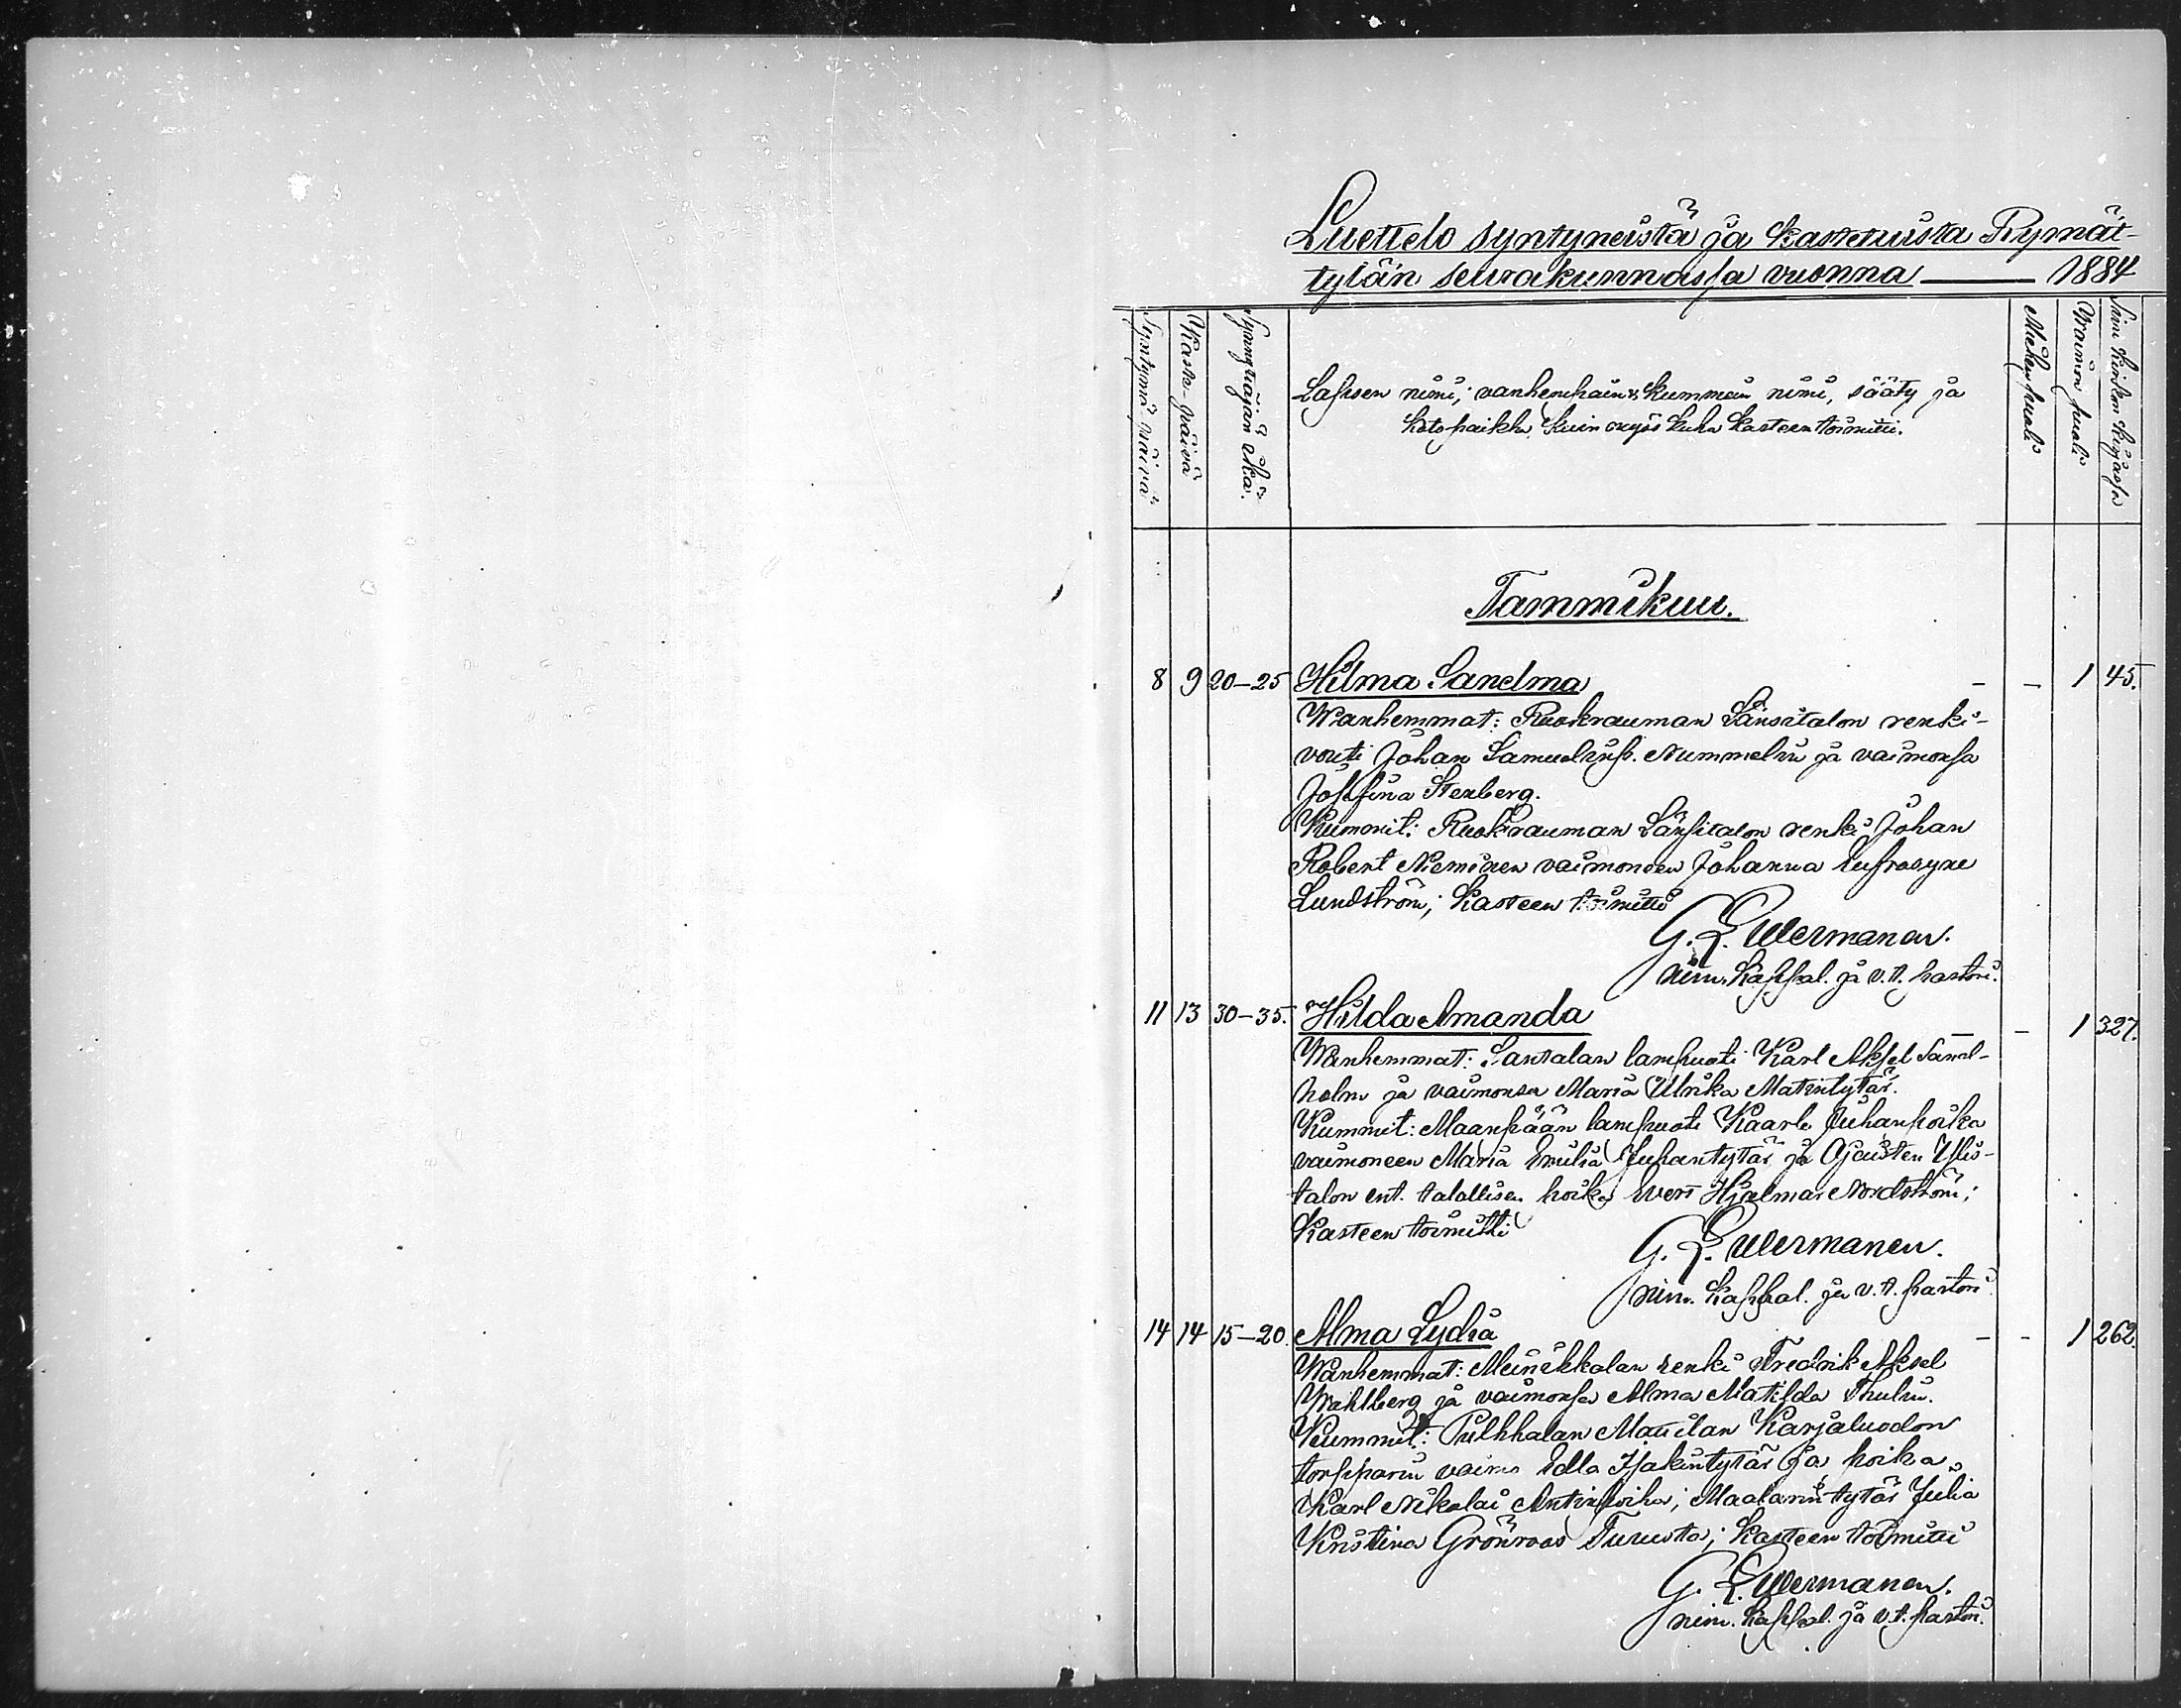 Luettelo syntyneistä ja kastetuista Rymät-
tylän seurakunnassa vuonna 1884
Syntymä-päivä
Kaste-päivä
Synnyttäjän ikä.
Lapsen nimi, vanhempain & kummein nimi, sääty ja
kotopaikka, kuin myös kuka kasteen toimitti.
Miehen puoli
Vaimon puoli
Sivu kirkon kirjassa
Tammikuu.
8 9 20-25 Hilma Sanelma - - 1 45.
Wanhemmat: Ruokrauman Länsitalon renki-
vouti Johan Samuelinp. Nummelin ja vaimonsa
Josefina Stenberg.
Kummit: Ruokrauman Länsitalon renki Johan
Robert Nieminen vaimoneen Johanna Eufrosyne
Lundström; kasteen toimitti
G. L. Wermanen.
nim. kappal. ja v.t. pastori.
11 13 30-35. Hilda Amanda - 1 327.
Wanhemmat: Santalan lampuoti Karl Aksel Sand-
holm ja vaimonsa Maria Ulrika Matintytär.
Kummit: Maanpään lampuoti Kaarle Juhanpoika
vaimoneen Maria Emilia Juhantytär ja Ajaisten Ylis-
talon ent. talollisen poika Iver Hjalmar Nordström;
kasteen toimitti
G. L. Wermanen.
nim. kappal. ja v.t. pastori
14 14 15-20. Alma Lydia - - 1 262.
Wanhemmat: Meinikkalan renki Fredrik Aksel
Wahlberg ja vaimonsa Alma Matilda Thulin.
Kummit: Pulkkalan Maunilan Karjaluodon
torpparin vaimo Edla Isakintytär ja poika
Karl Nikolai Antinpoika; Maalarin tytär Julia
Kristina Grönroos Turusta; kasteen toimitti
G. L. Wermanen.
nim. kappal. ja v.t. pastori.